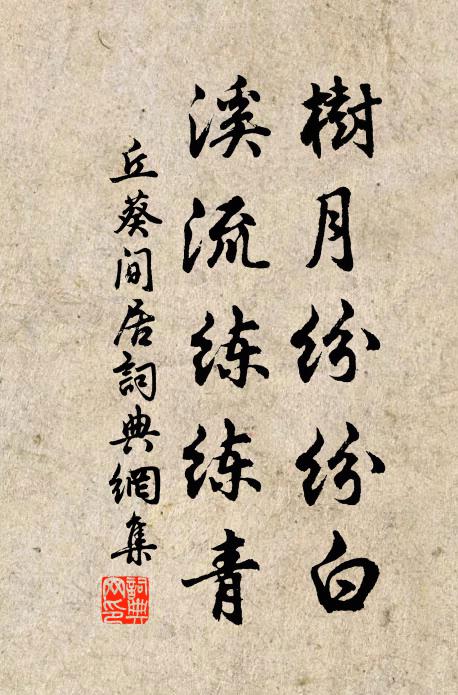 樹月紛紛白
溪流練練青
丘葵閒居詞典網集
詞典網印